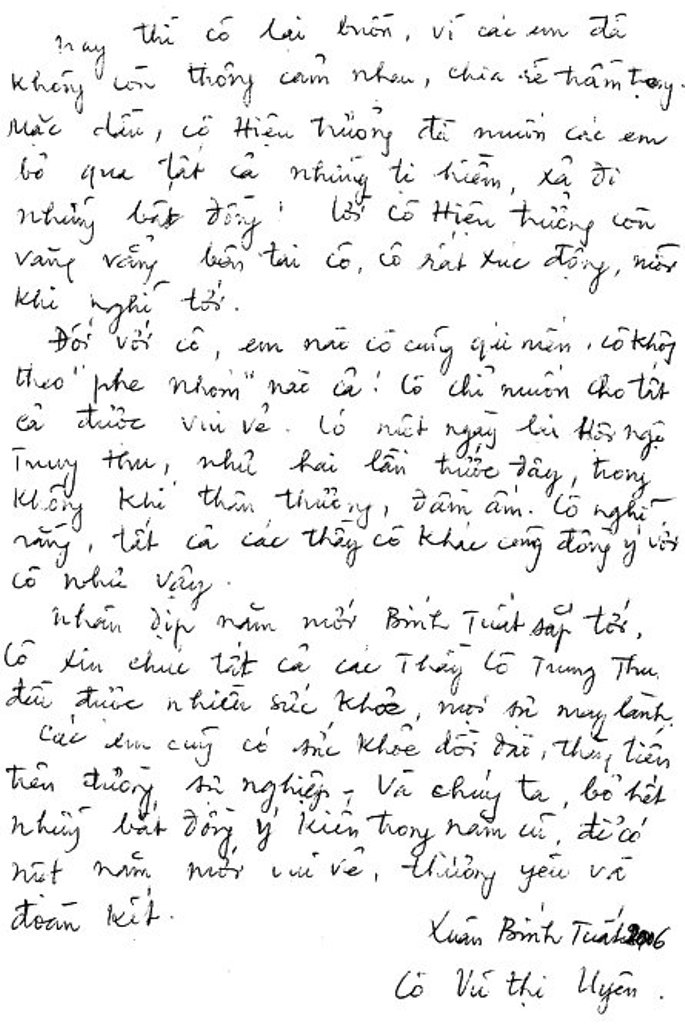 nay thì cô lại buồn, vì các em đã
không còn thông cảm nhau, chia rẽ trầm trọng.
Mặc dầu, cô Hiệu trưởng đã muốn các em
bỏ qua tất cả những tị hiềm, xả đi
những bất đồng! Lời cô Hiệu trưởng còn
văng vẳng bên tai cô, cô rất xúc động, mỗi
khi nghĩ tới.
Đối với cô, em nào cô cũng quí mến. Cô không
theo "phe nhóm" nào cả! Cô chỉ muốn cho tất
cả được vui vẻ. Có một ngày lui Hội ngộ
Trung Thu, như hai lần trước đây, trong
không khí thân thương, đầm ấm. Cô nghĩ
rằng, tất cả các thầy cô khác cũng đồng ý với
cô như vậy.
Nhân dịp năm mới Bính Tuất sắp tới,
Cô xin chúc tất cả các Thầy Cô Trung Thu
đều được nhiều sức khỏe, mọi sự may lành.
Các em cũng có sức khỏe dồi dào, thăng tiến
trên đường sự nghiệp. Và chúng ta, bỏ hết
những bất đồng ý kiến trong năm cũ, để có
một năm mới vui vẻ, thương yêu và
đoàn kết.
Xuân Bính Tuất 2006
Cô Vũ thị Uyên.